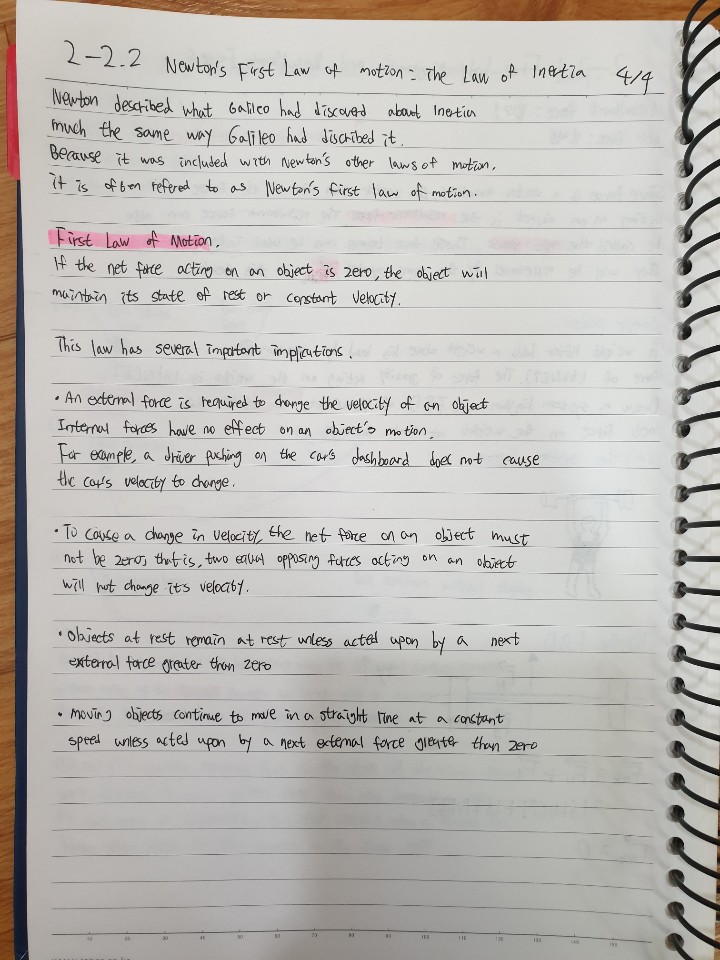 2-2.2 Newton's First Law of motion = The Law of Inertia 4/4
Newton described what Galileo had discoverd about Inertia
much the same way Galileo had discribed it.
Because it was included with Newton's other laws of motion,
it is often refered to as Newton's first law of motion.
First Law of Motion.
If the net force acting on an object is zero, the object will
maintain its state of rest or constant velocity.
This law has several important implications.
• An external force is required to change the velocity of an object
Internal forces have no effect on an object's motion.
For example, a driver pushing on the car's dashboard does not cause
the car's velocity to change.
• To cause a change in velocity, the net force on an object must
not be zero; that is, two equal opposing forces acting on an object
will not change its velocity.
• Objects at rest remain at rest unless acted upon by a next
external force greater than zero
• moving objects continue to move in a straight line at a constant
speed unless acted upon by a next external force greater than zero